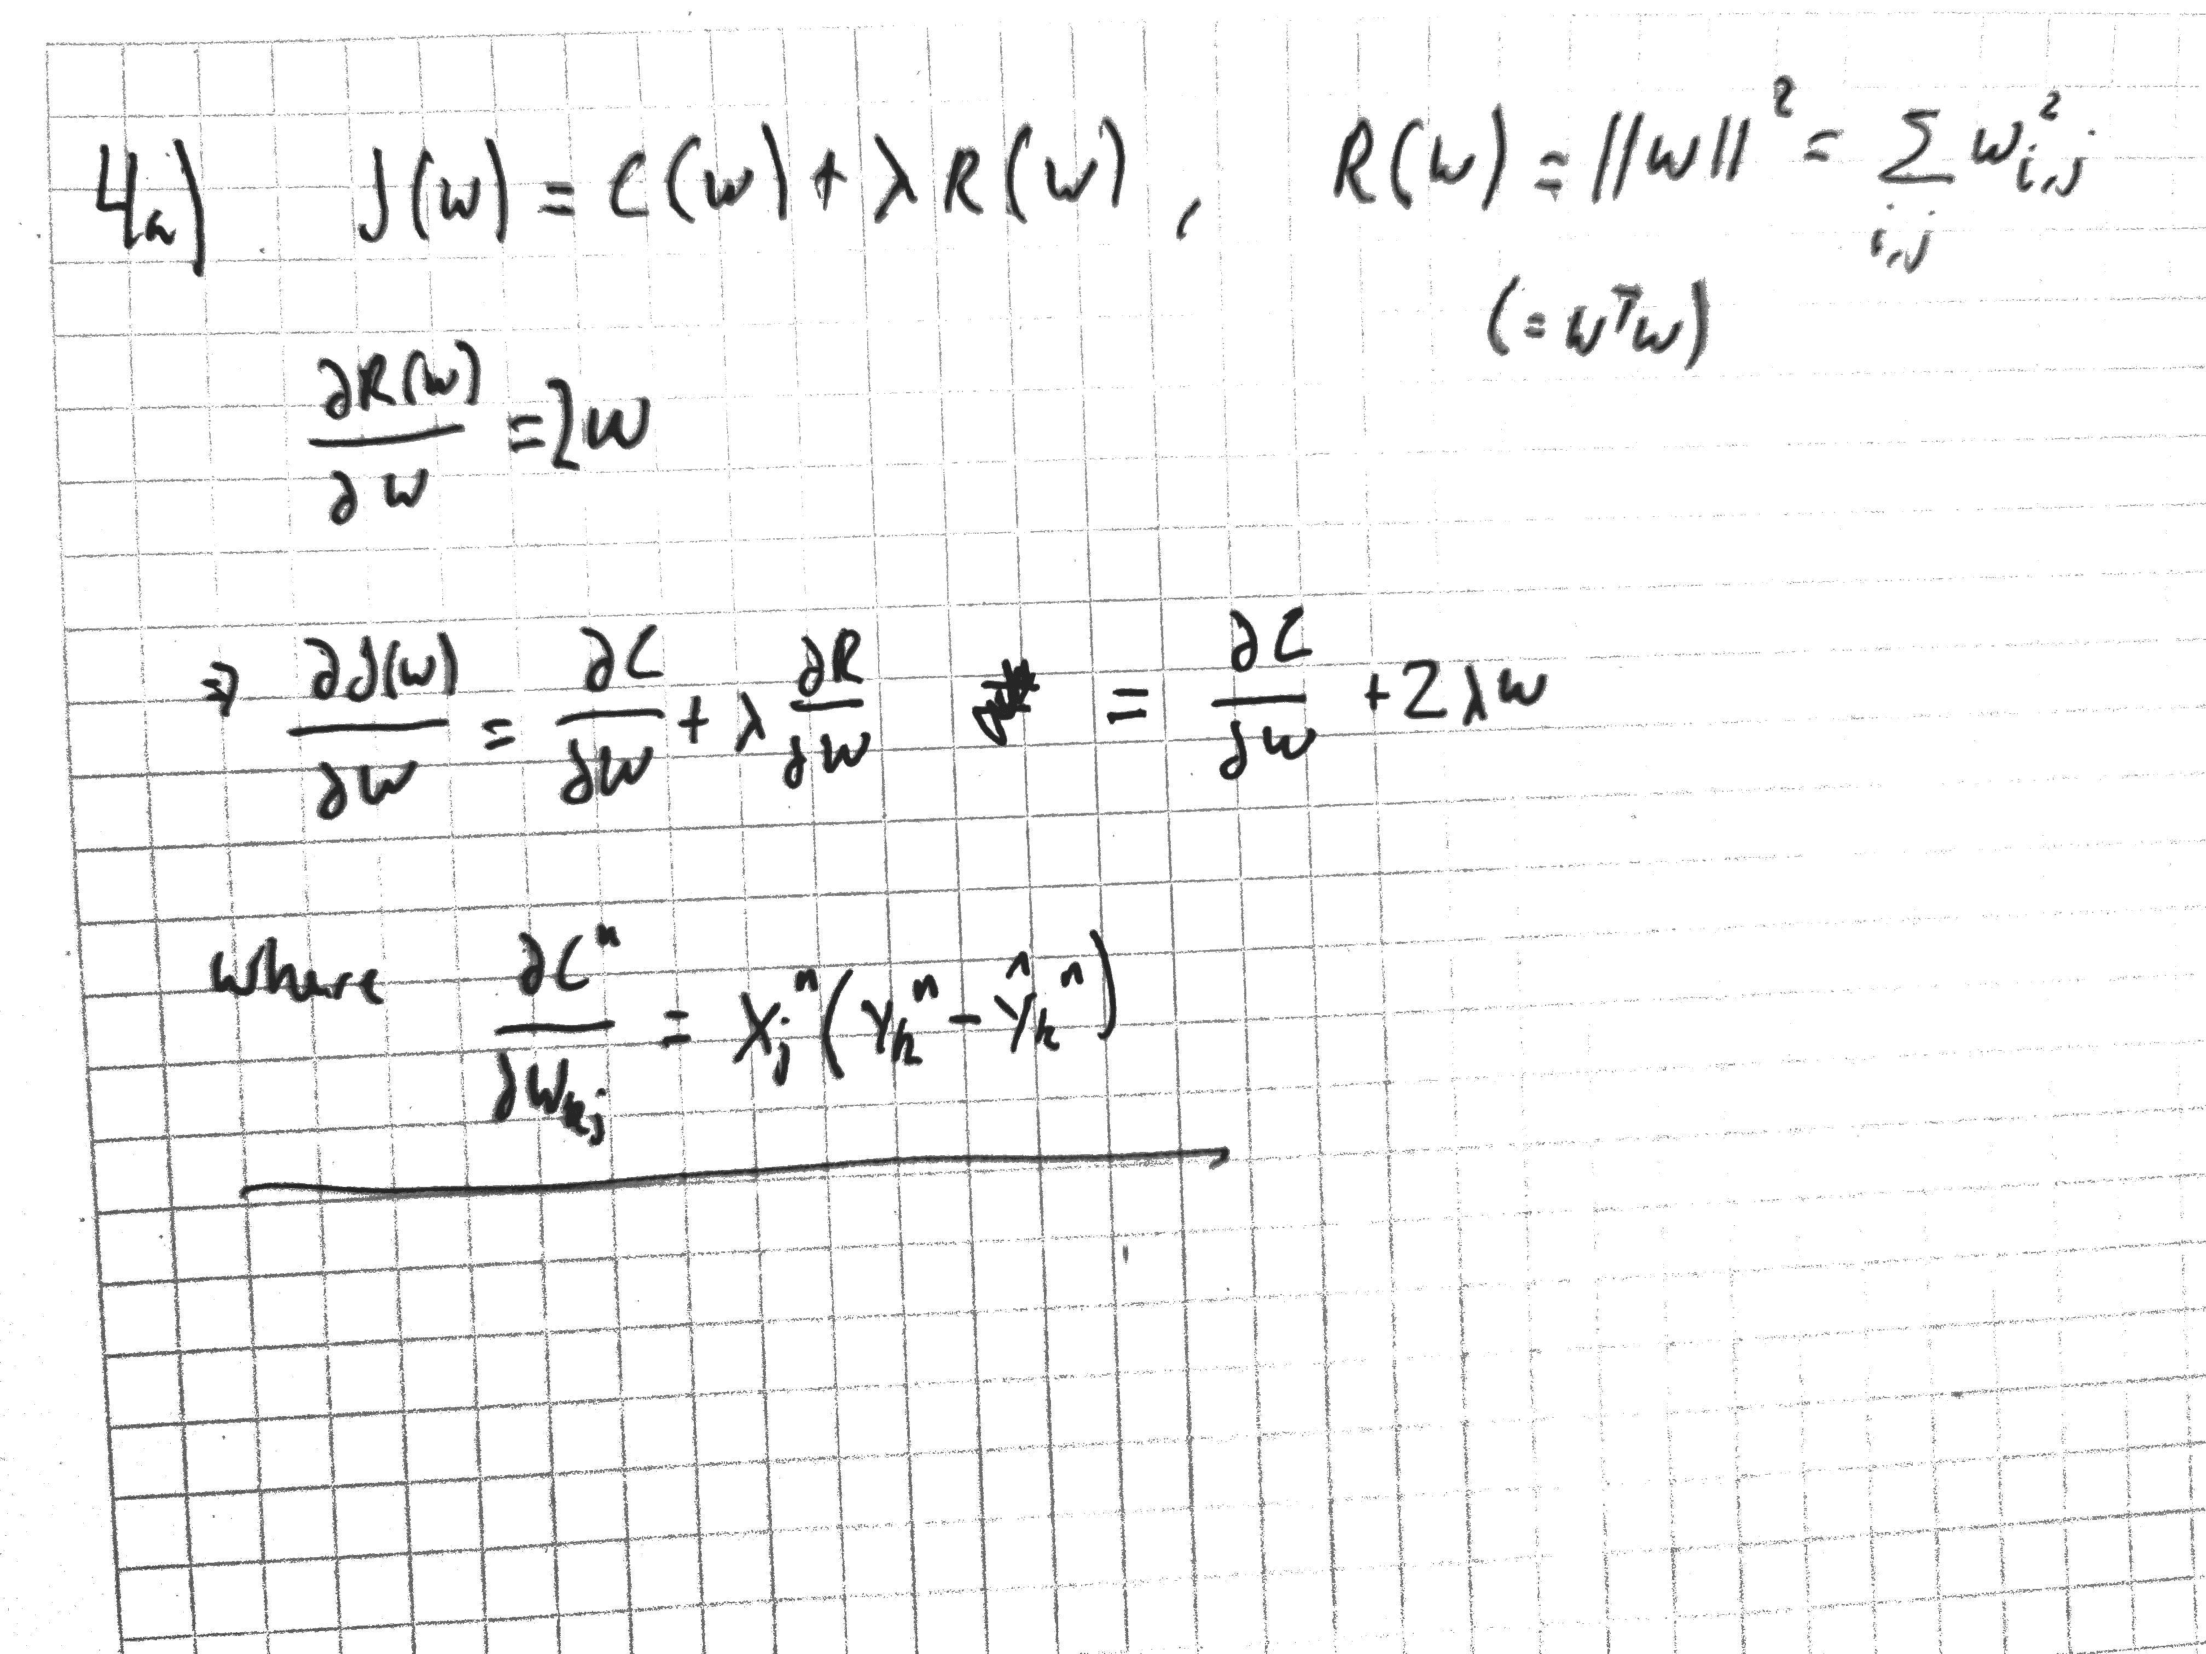 4a) J(w) = C(w) + λR(w), R(w) = ||w||² = Σ_{i,j} w²_{i,j}
(= wᵀw)
∂R(w)/∂w = 2w
⇒ ∂J(w)/∂w = ∂C/∂w + λ ∂R/∂w = ∂C/∂w + 2λw
where ∂Cⁿ/∂w_{kj} = x_jⁿ(y_kⁿ - ŷ_kⁿ)